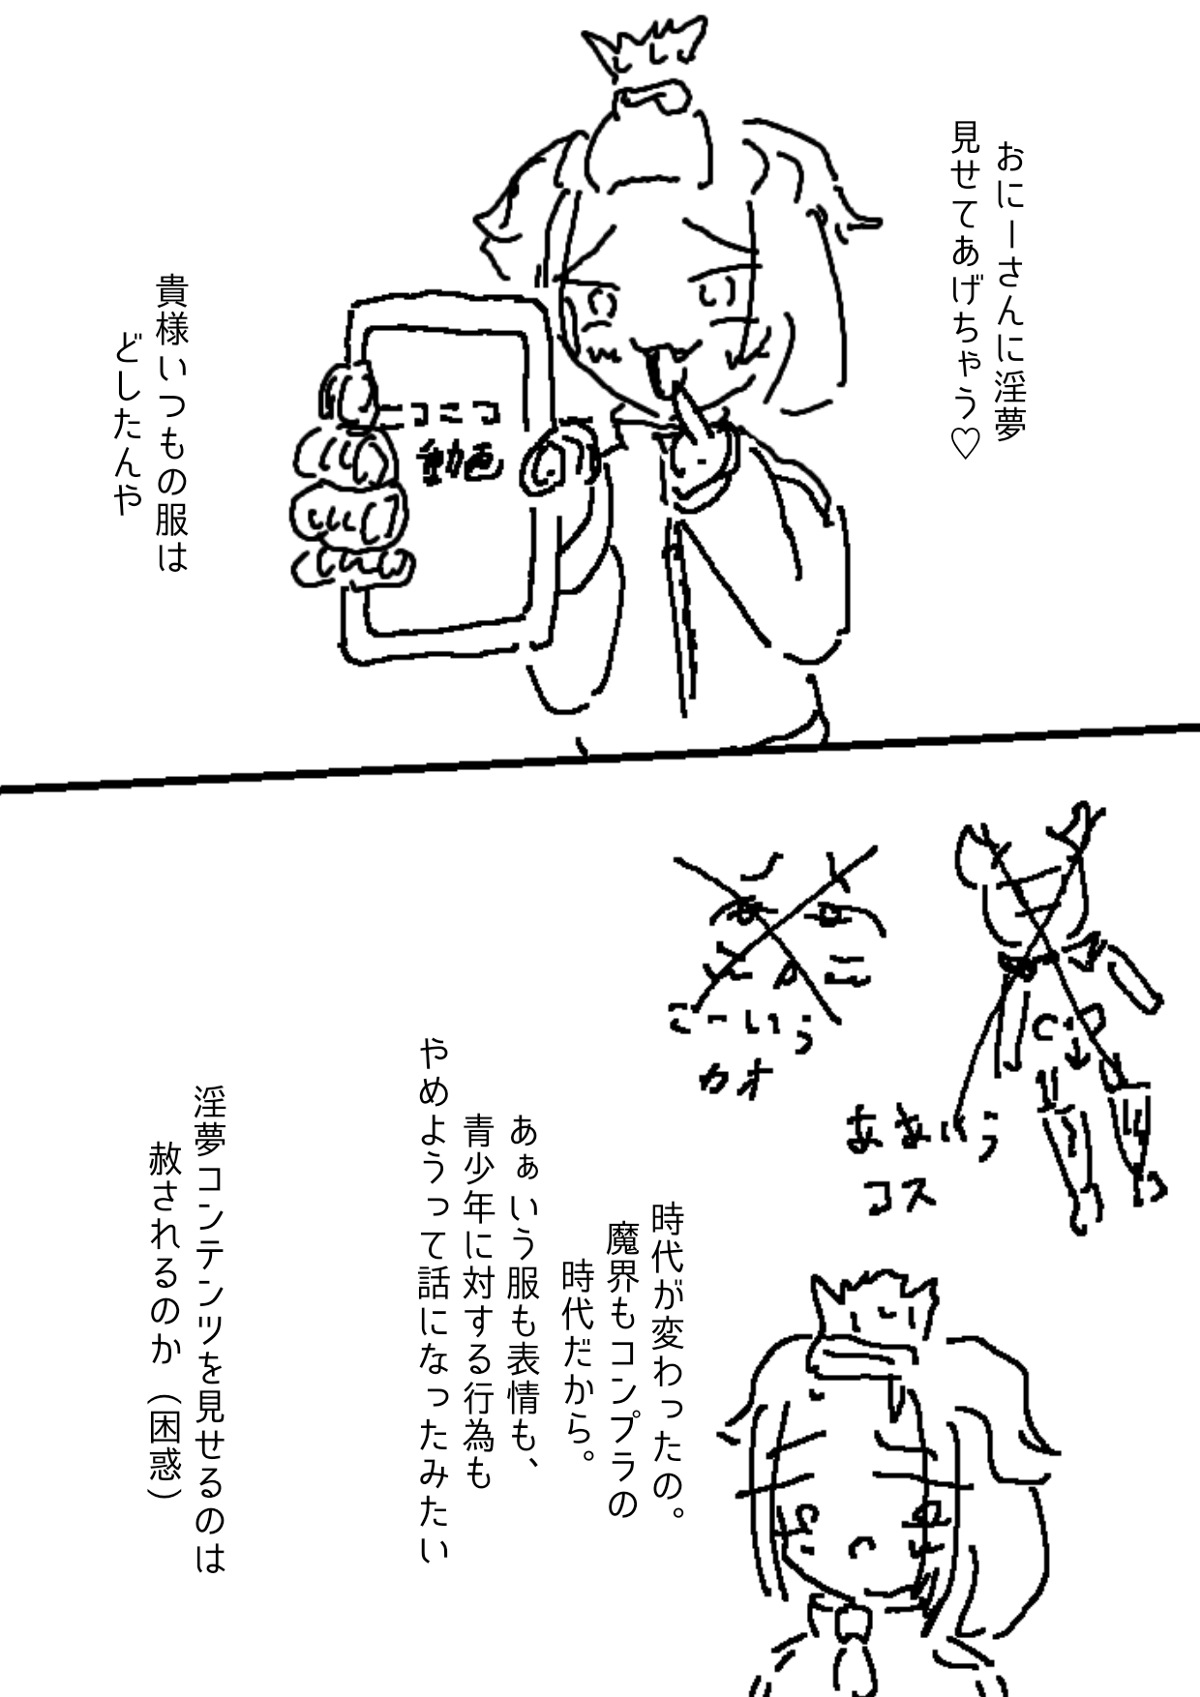 おにーさんに淫夢
見せてあげちゃう♡
ニコニコ
動画
貴様いつもの服は
どしたんや
ああいう
コス
こーいう
カオ
時代が変わったの。
魔界もコンプラの
時代だから。
あぁいう服も表情も、
青少年に対する行為も
やめようって話になったみたい
淫夢コンテンツを見せるのは
赦されるのか（困惑）